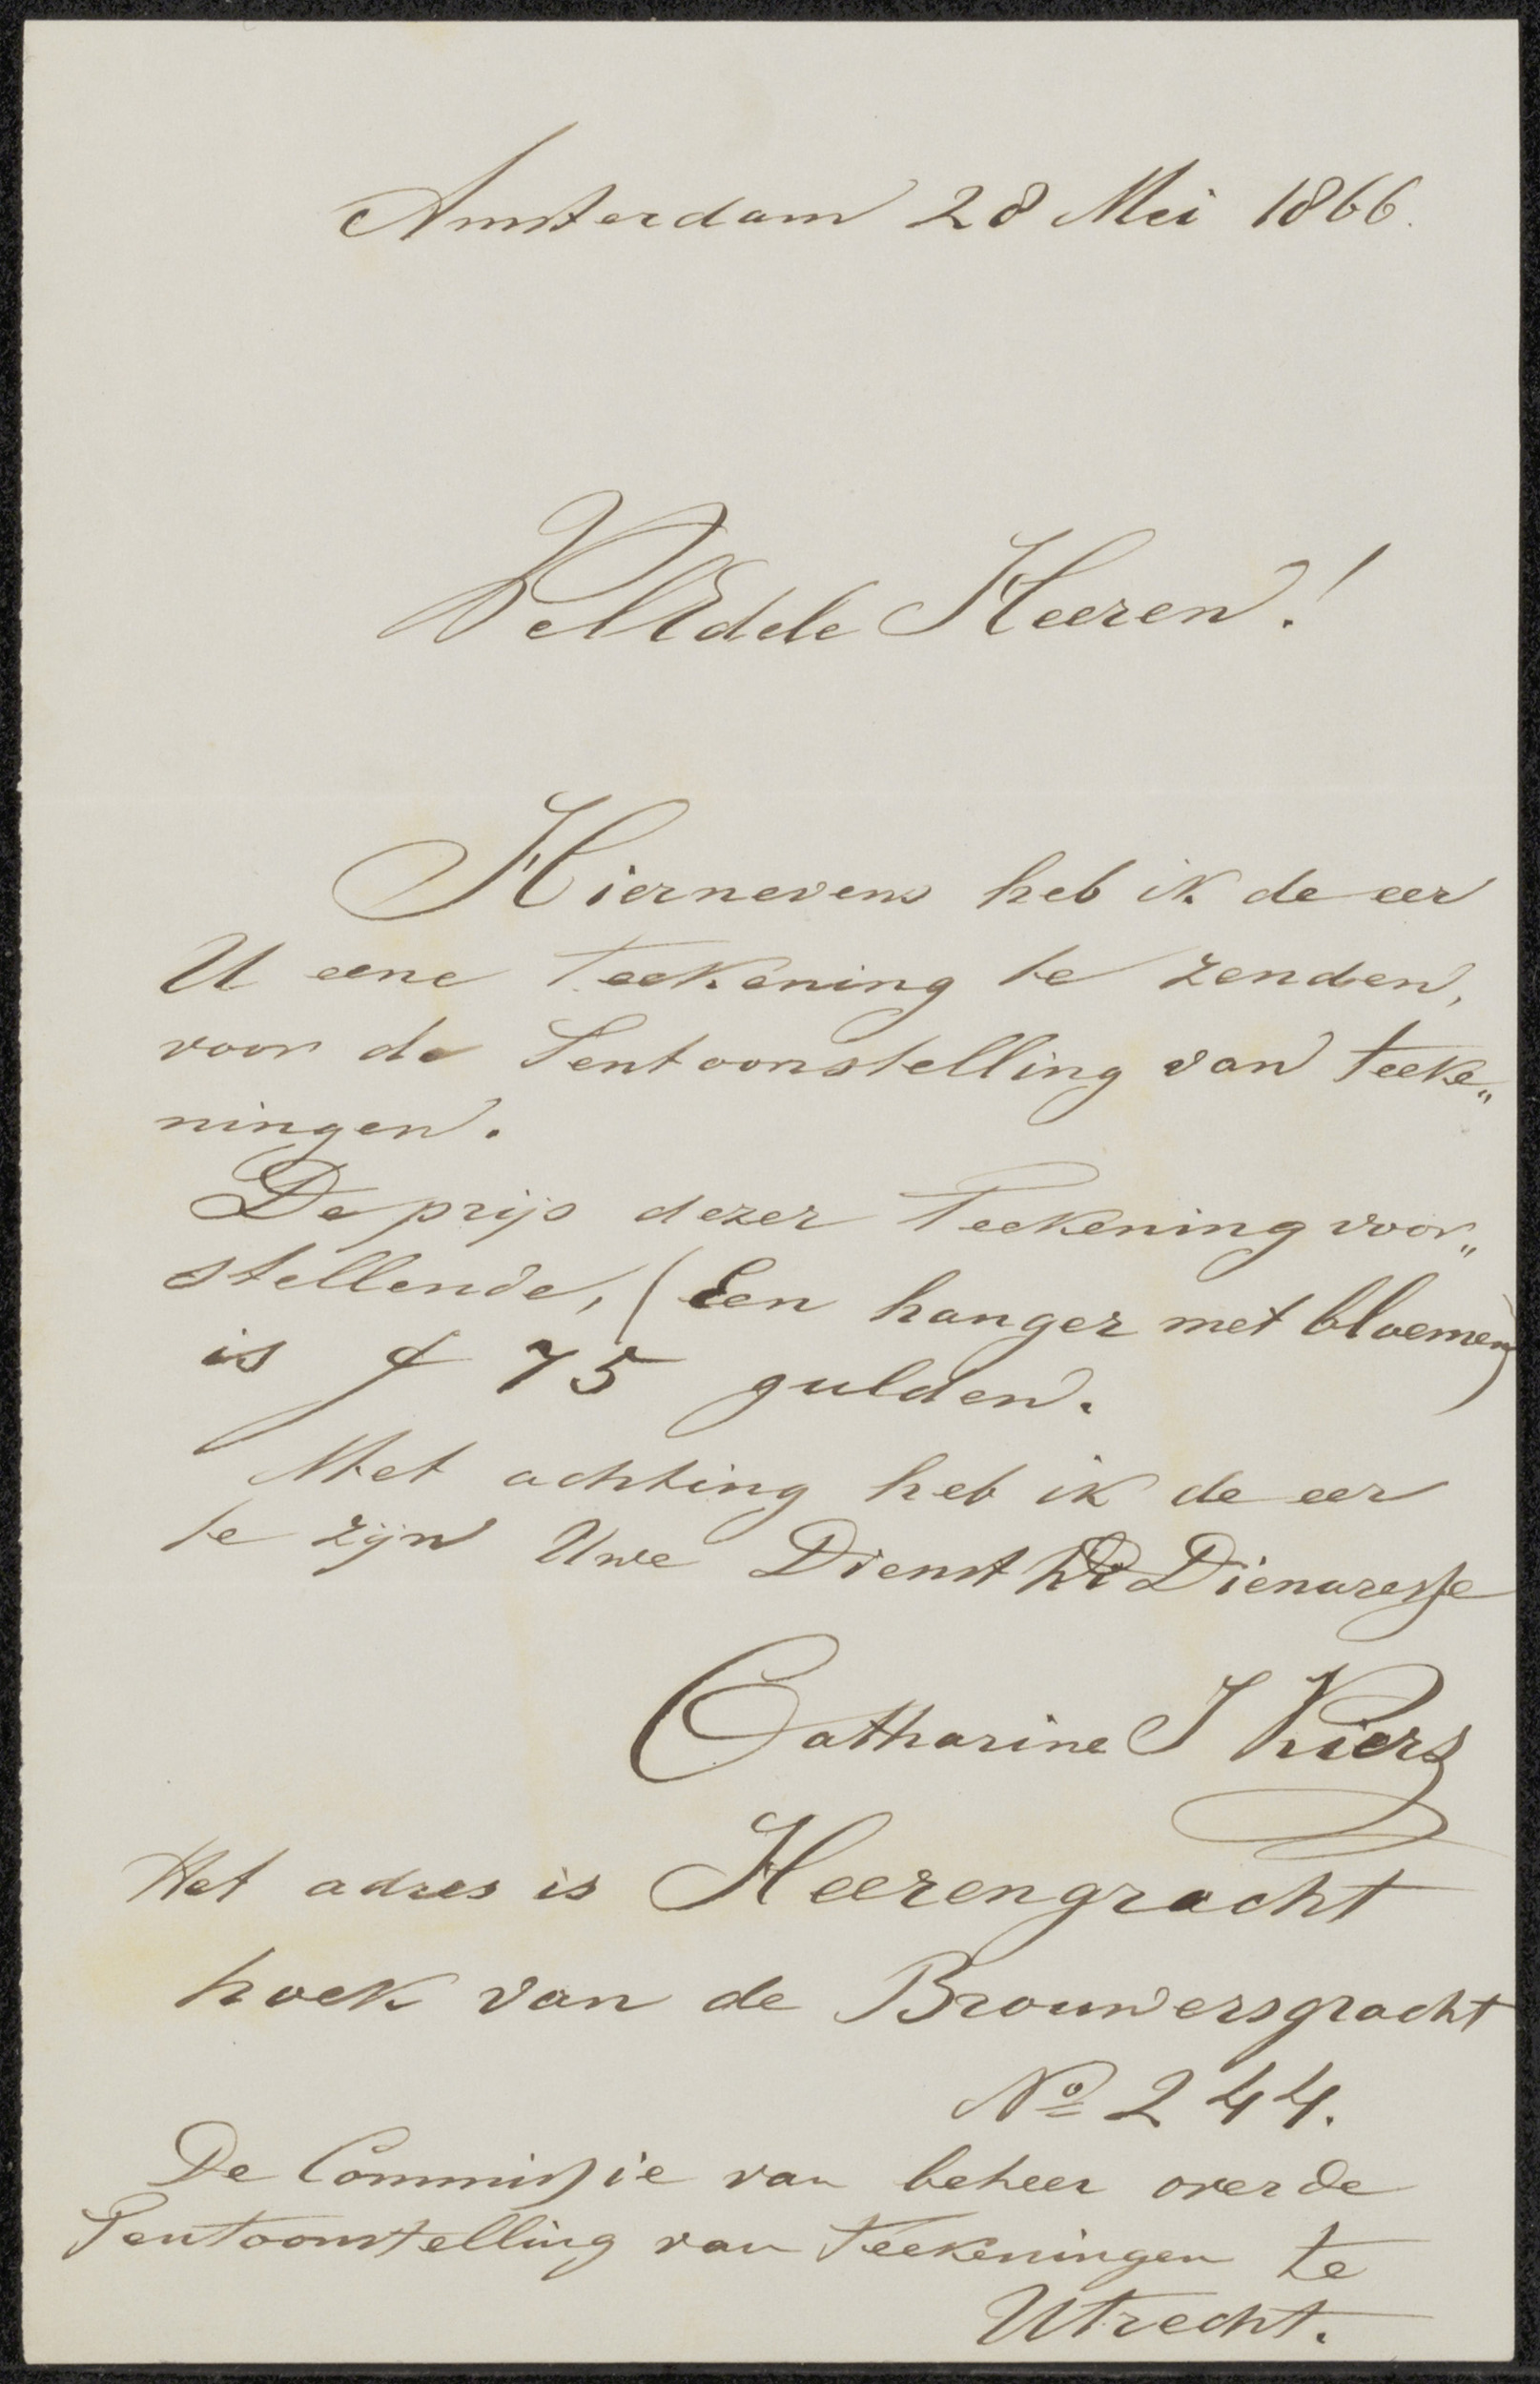 Amsterdam 28 Mei 1866.
WelEdele Heeren!
Hiernevens heb ik de eer
U eene Teekening te zenden,
voor de Tentoonstelling van teeke„
ningen.
De prijs dezer Teekening voor„
stellende, (Een hanger met bloemen)
is ƒ 75 gulden.
Met achting heb ik de eer
te zijn Uwe Dienst Dienaresse
Catharine I Kiers
Het adres is Heerengracht
hoek van de Brouwersgracht
No 244.
De Commissie van beheer over de
Tentoonstelling van Teekeningen te
Utrecht.